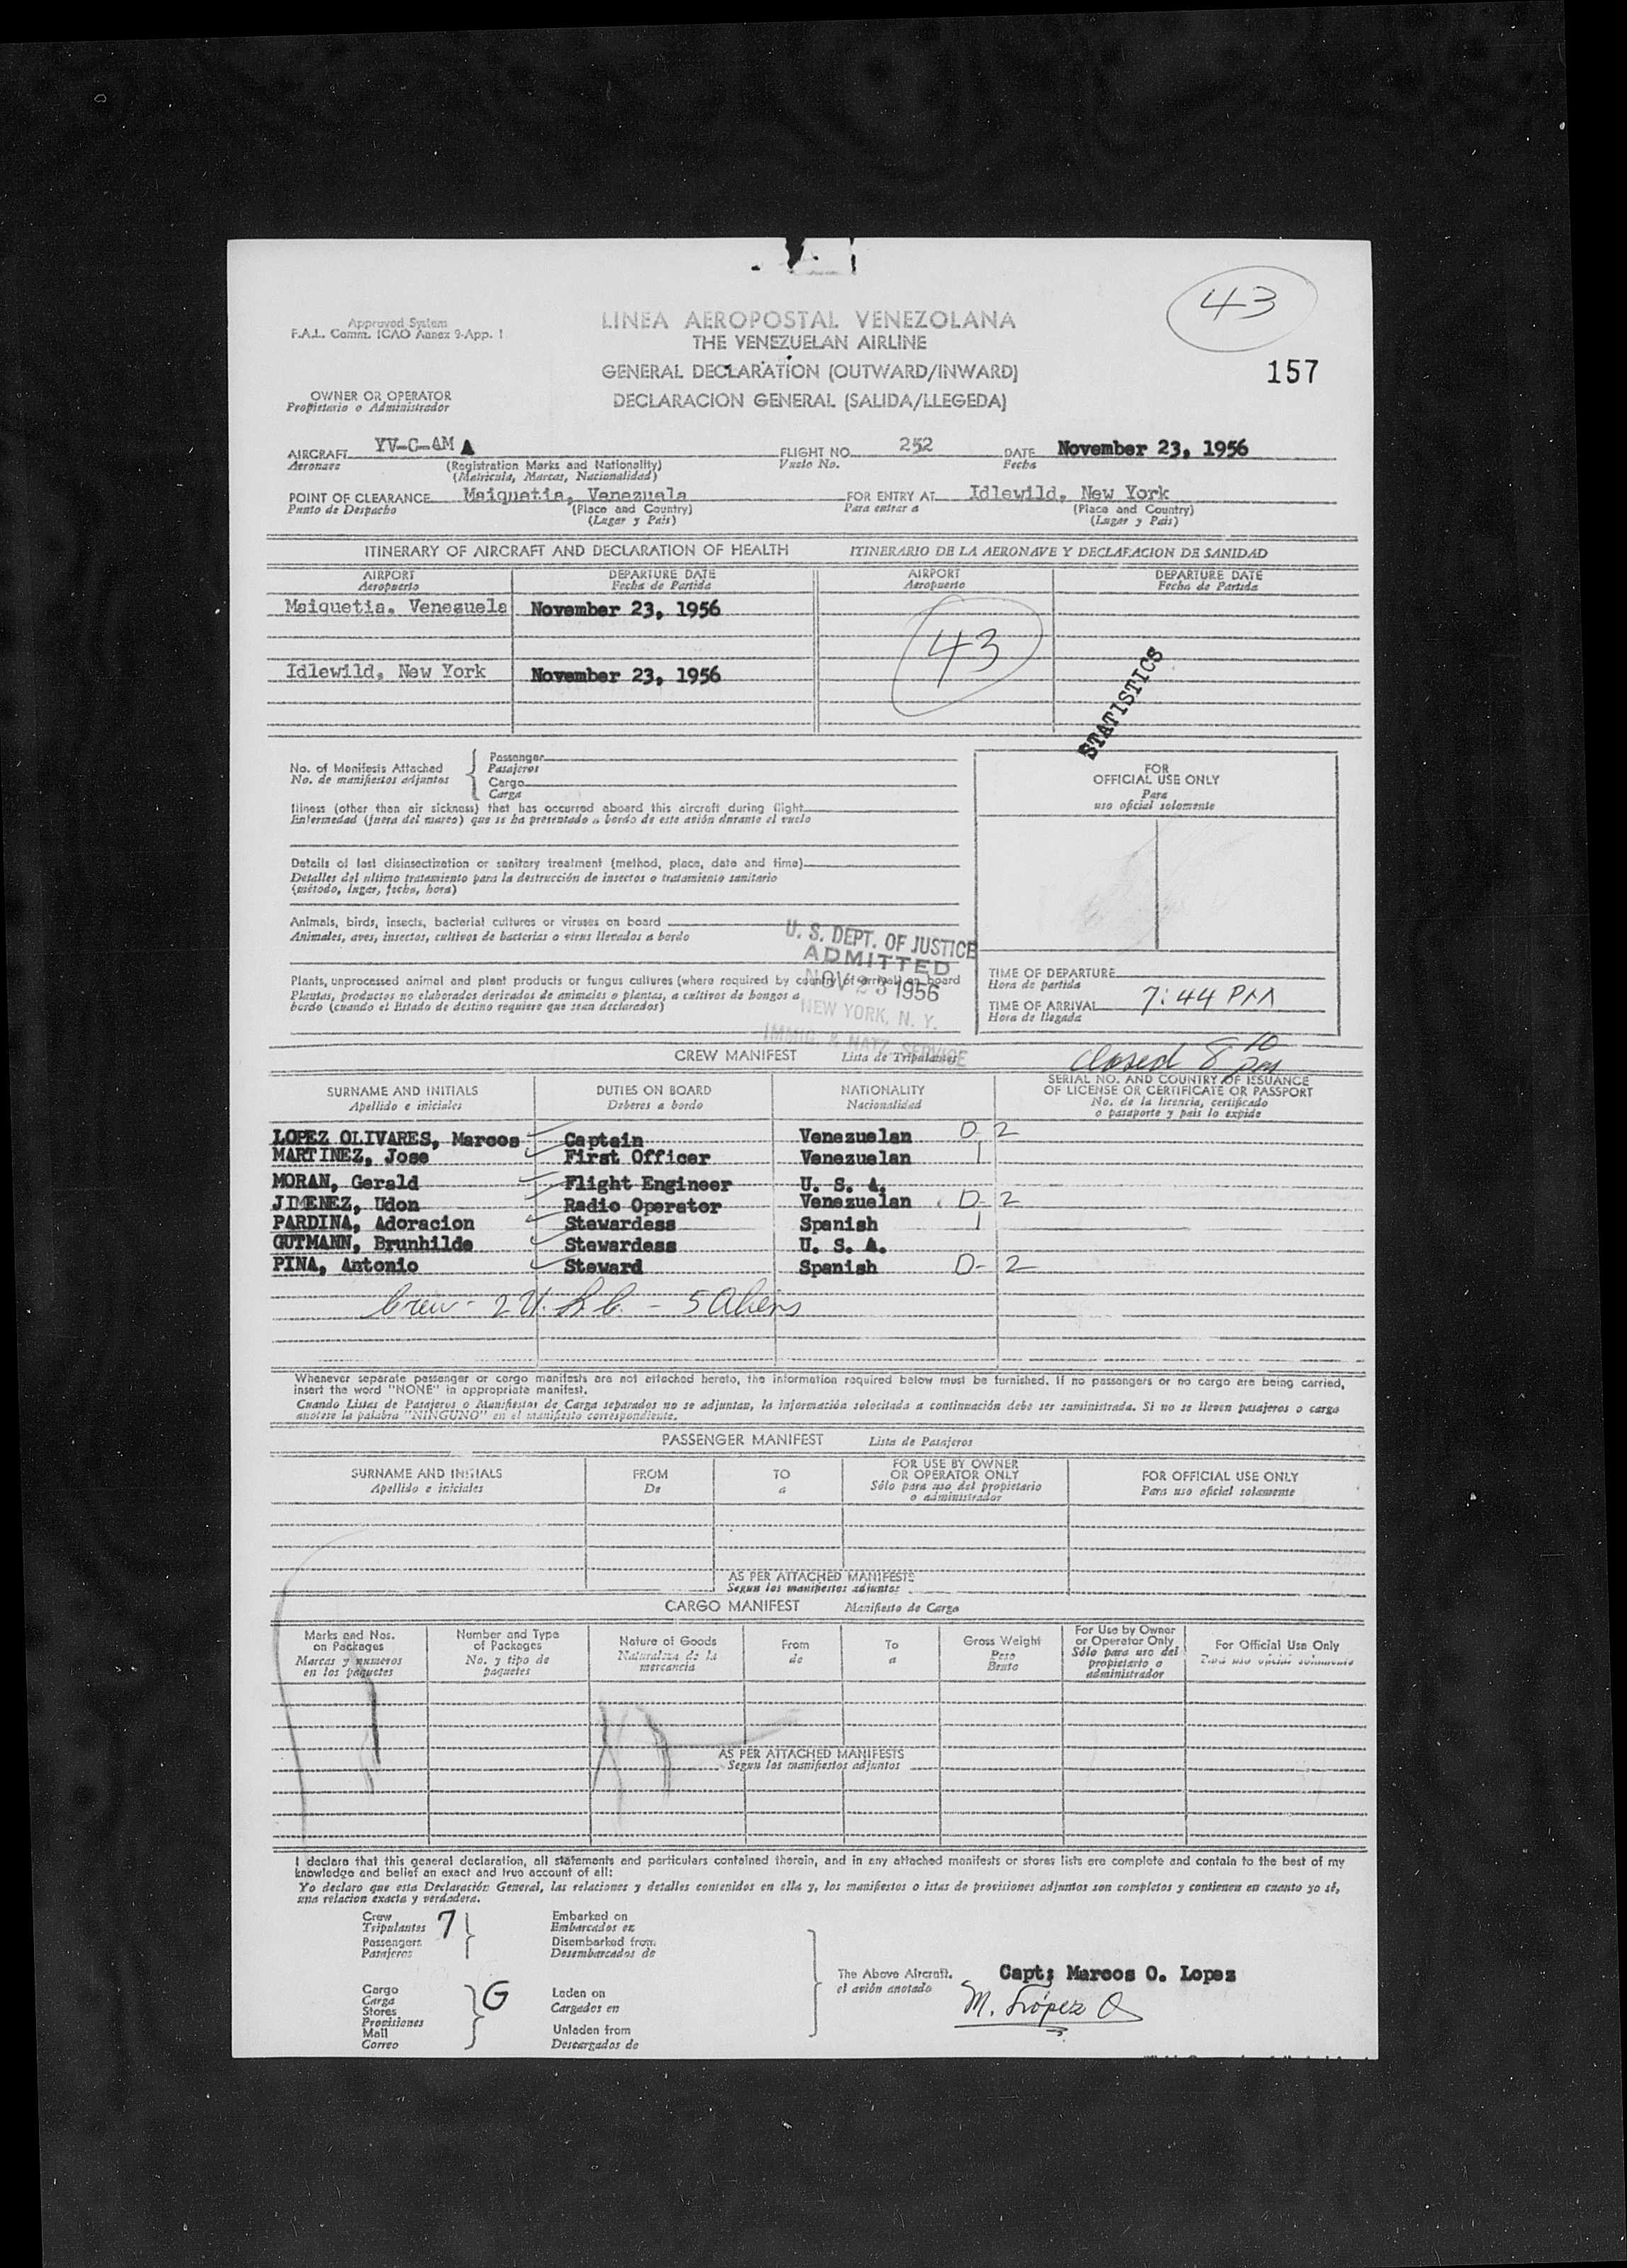 43
Approved System
F.A.L. Comm. ICAO Annex 9-App. 1
LINEA AEROPOSTAL VENEZOLANA
THE VENEZUELAN AIRLINE
GENERAL DECLARATION (OUTWARD/INWARD)
DECLARACION GENERAL (SALIDA/LLEGEDA)
157
OWNER OR OPERATOR
Propietario o Administrador
AIRCRAFT YV-C-AMA FLIGHT NO. 252 DATE November 23, 1956
Aeronave (Registration Marks and Nationality) Vuelo No. Fecha
(Matricula, Marcas, Nacionalidad)
POINT OF CLEARANCE Maiquetia, Venezuela FOR ENTRY AT Idlewild, New York
Punto de Despacho (Place and Country) Para entrar a (Place and Country)
(Lugar y Pais) (Lugar y Pais)
ITINERARY OF AIRCRAFT AND DECLARATION OF HEALTH ITINERARIO DE LA AERONAVE Y DECLARACION DE SANIDAD
AIRPORT DEPARTURE DATE AIRPORT DEPARTURE DATE
Aeropuerto Fecha de Partida Aeropuerto Fecha de Partida
Maiquetia, Venezuela November 23, 1956
43
Idlewild, New York November 23, 1956
STATISTICS
No. of Manifests Attached
No. de manifiestos adjuntos
Passenger
Pasajeros
Cargo
Carga
Illness (other than air sickness) that has occurred aboard this aircraft during flight
Enfermedad (fuera del mareo) que se ha presentado a bordo de este avión durante el vuelo
Details of last disinsectization or sanitary treatment (method, place, date and time)
Detalles del ultimo tratamiento para la destrucción de insectos o tratamiento sanitario
(método, lugar, fecha, hora)
Animals, birds, insects, bacterial cultures or viruses on board
Animales, aves, insectos, cultivos de bacterias o virus llevados a bordo
Plants, unprocessed animal and plant products or fungus cultures (where required by country of arrival) on board
Plantas, productos no elaborados derivados de animales o plantas, a cultivos de hongos a
bordo (cuando el Estado de destino requiere que sean declarados)
U. S. DEPT. OF JUSTICE
ADMITTED
NOV 23 1956
NEW YORK, N. Y.
IMMIG. & NATZ. SERVICE
FOR
OFFICIAL USE ONLY
Para
uso oficial solomente
TIME OF DEPARTURE
Hora de partida
TIME OF ARRIVAL 7:44 PM
Hora de llegada
closed 8 10 pm
CREW MANIFEST Lista de Tripulantes
SURNAME AND INITIALS DUTIES ON BOARD NATIONALITY SERIAL NO. AND COUNTRY OF ISSUANCE
OF LICENSE OR CERTIFICATE OR PASSPORT
Apellido e iniciales Deberes a bordo Nacionalidad No. de la licencia, certificado
o pasaporte y pais lo expide
LOPEZ OLIVARES, Marcos Captain Venezuelan D-2
MARTINEZ, Jose First Officer Venezuelan 1
MORAN, Gerald Flight Engineer U. S. A.
JIMENEZ, Udon Radio Operator Venezuelan D-2
PARDINA, Adoracion Stewardess Spanish 1
GUTMANN, Brunhilde Stewardess U. S. A.
PINA, Antonio Steward Spanish D-2
Crew - 2 U. S. C. - 5 Aliens
Whenever separate passenger or cargo manifests are not attached hereto, the information required below must be furnished. If no passengers or no cargo are being carried,
insert the word "NONE" in appropriate manifest.
Cuando Listas de Pasajeros o Manifiestos de Carga separados no se adjuntan, la información solocitada a continuación debe ser suministrada. Si no se lleven pasajeros o carga
anotese la palabra "NINGUNO" en el manifiesto correspondiente.
PASSENGER MANIFEST Lista de Pasajeros
SURNAME AND INITIALS FROM TO FOR USE BY OWNER
OR OPERATOR ONLY FOR OFFICIAL USE ONLY
Apellido e iniciales De a Sólo para uso del propietario
o administrador Para uso oficial solamente
AS PER ATTACHED MANIFESTS
Segun los manifiestos adjuntos
CARGO MANIFEST Manifiesto de Carga
Marks and Nos.
on Packages
Marcas y numeros
en los paquetes
Number and Type
of Packages
No. y tipo de
paquetes
Nature of Goods
Naturaleza de la
mercancia
From
de
To
a
Gross Weight
Peso
Bruto
For Use by Owner
or Operator Only
Sólo para uso del
propietario o
administrador
For Official Use Only
Para uso oficial solamente
AS PER ATTACHED MANIFESTS
Segun los manifiestos adjuntos
I declare that this general declaration, all statements and particulars contained therein, and in any attached manifests or stores lists are complete and contain to the best of my
knowledge and belief an exact and true account of all:
Yo declaro que esta Declaración General, las relaciones y detalles contenidos en ella y, los manifiestos o listas de provisiones adjuntos son completos y contienen en cuanto yo sé,
una relacion exacta y verdadera.
Crew 7 Embarked on
Tripulantes Embarcados en
Passengers Disembarked from
Pasajeros Desembarcados de
Cargo G Laden on
Carga Cargados en
Stores
Provisiones
Mail Unladen from
Correo Descargados de
The Above Aircraft.
el avión anotado
Capt; Marcos O. Lopez
M. López O